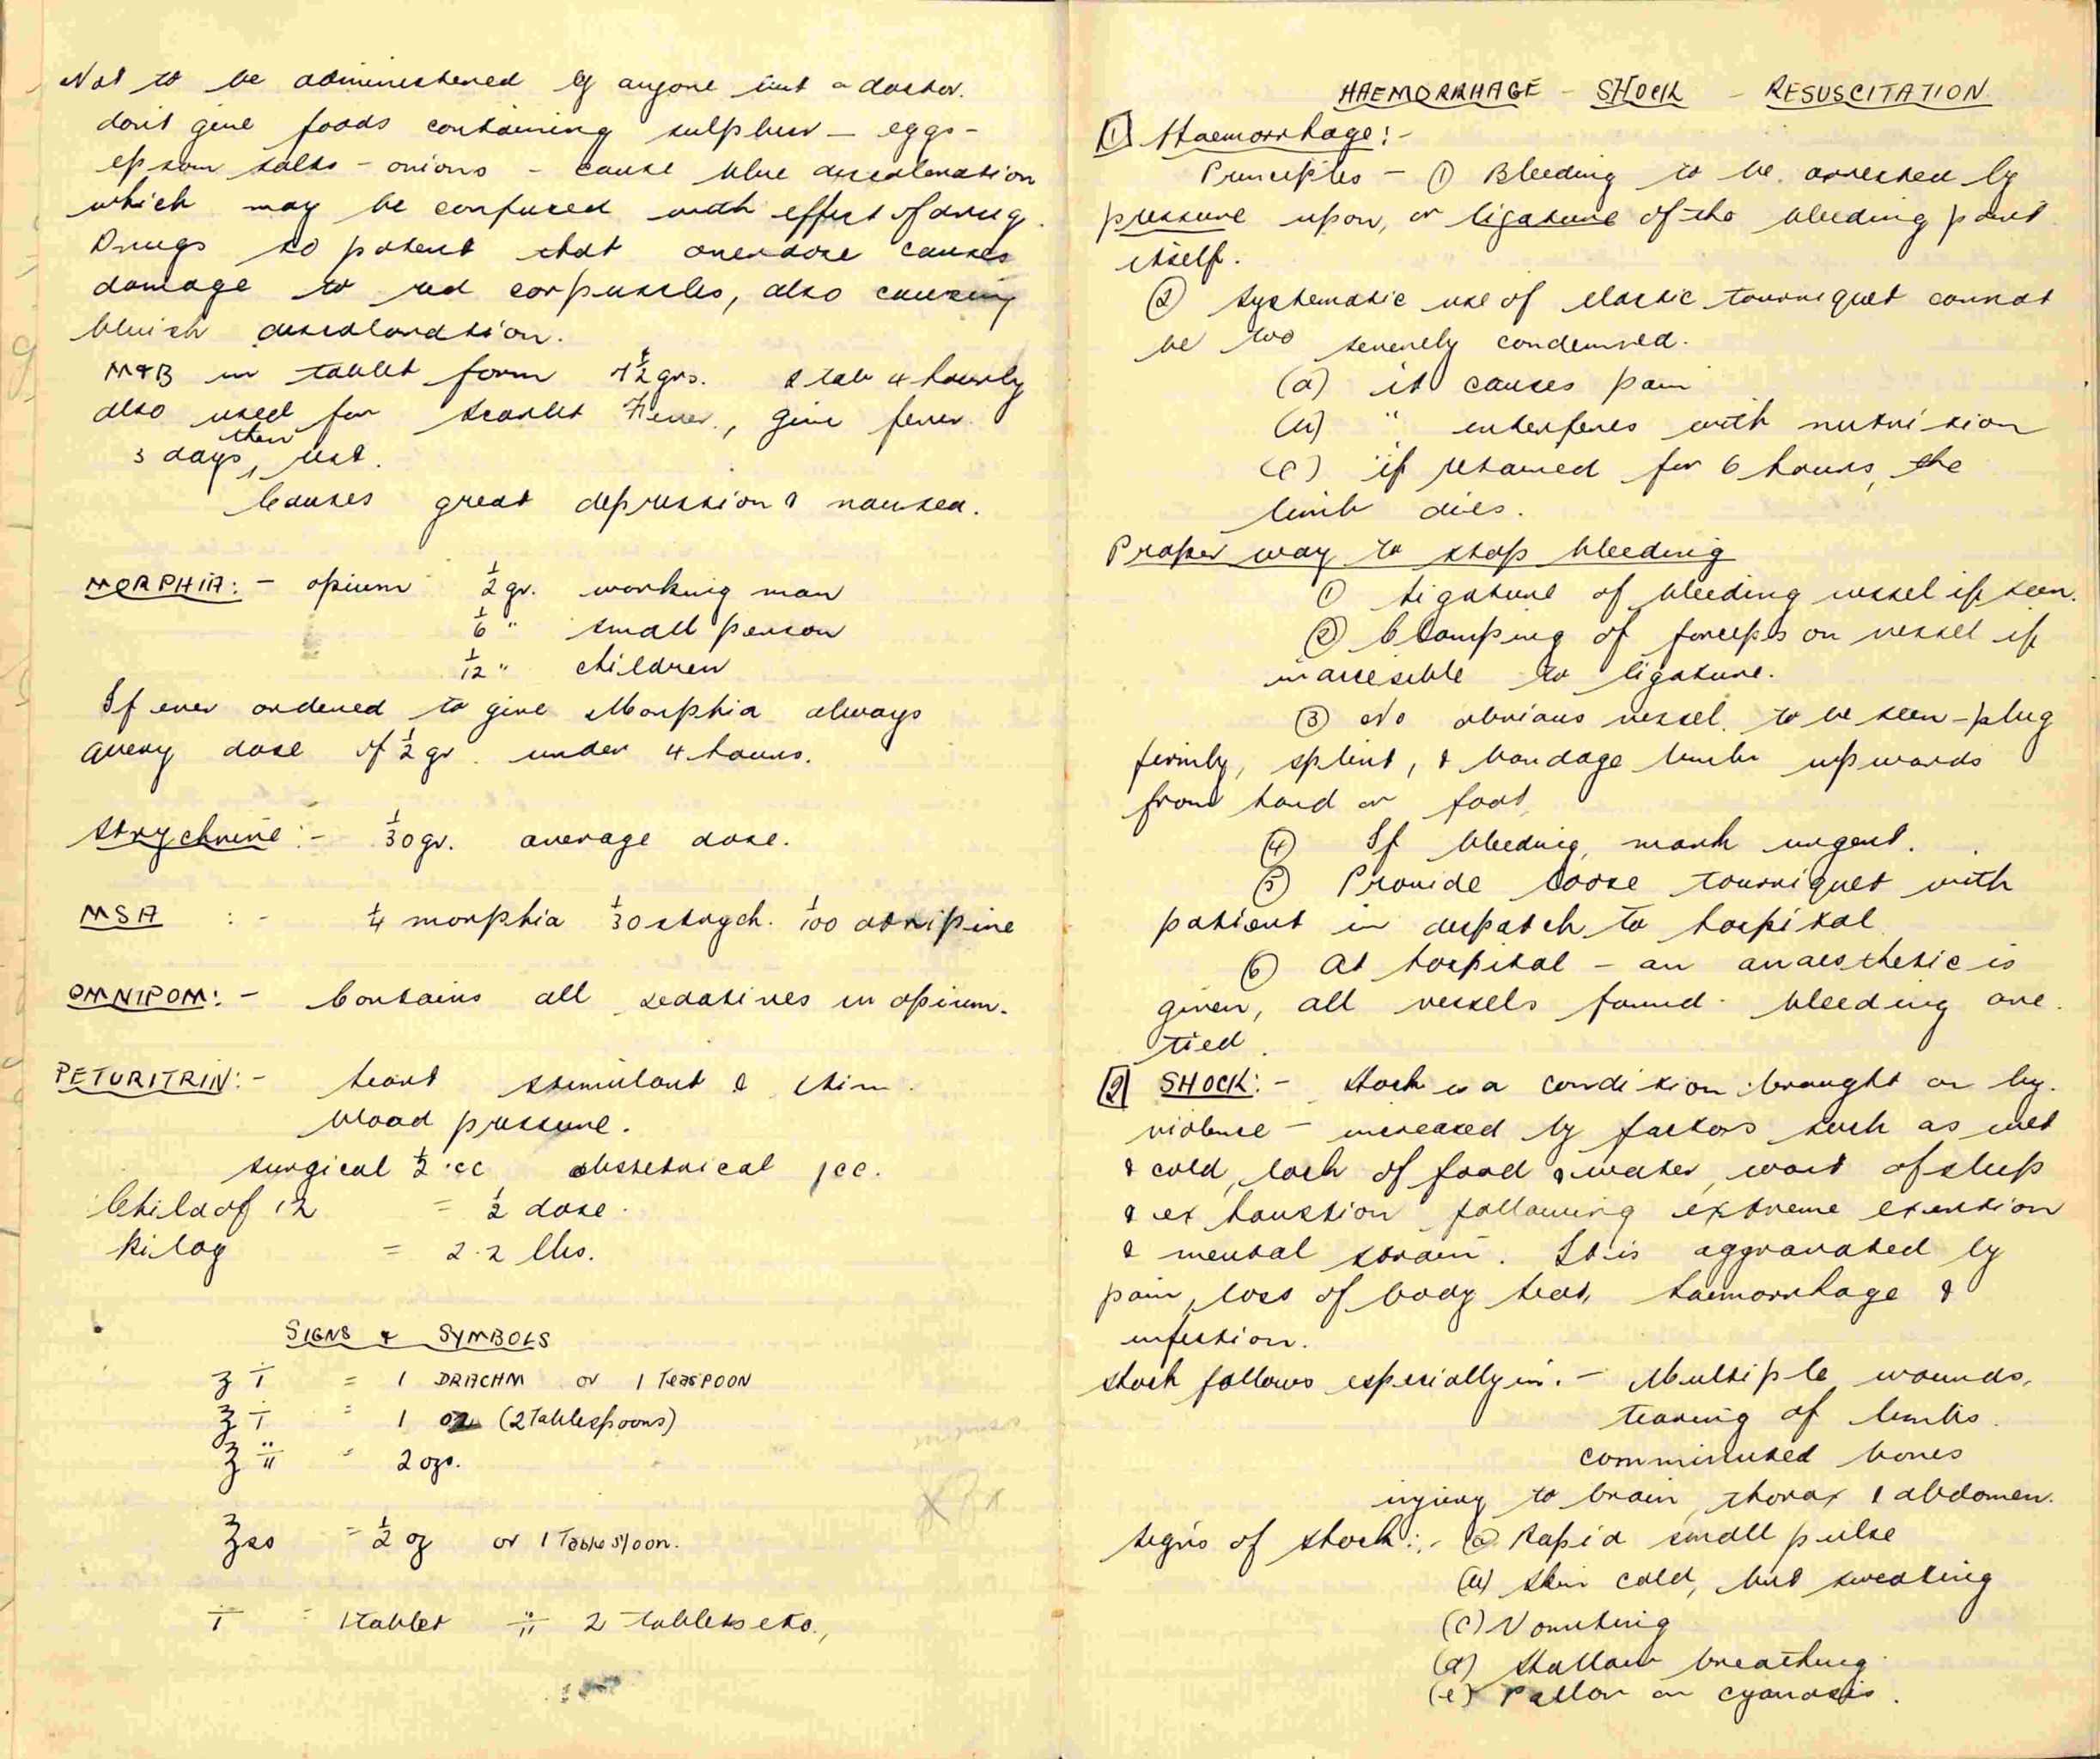 Not to be administered by anyone but a doctor.
don't give foods containing sulphur - eggs -
epsom salts - onions - cause blue discolouration
which may be confused with effect of drug.
Drugs so potent that overdose causes
damage to red corpuscles, also causing
bluish discolouration.
M&B in tablet form 7½grs. 2 tab 4 hourly
also used for Scarlet Fever, give fever
3 days, then rest.
Causes great depression & nausea.
MORPHIA: - opium ½gr. working man
1/6 " small person
1/12 " children
If ever ordered to give Morphia always
query dose if ½gr. under 4 hours.
Strychnine :- 1/30gr. average dose.
MSA :- ¼ morphia 1/30 strych. 1/100 atripine
OMNIPOM: - Contains all sedatives in opium.
PETURITRIN: - heart stimulant & stim.
blood pressure.
surgical ½ cc obstetrical 1cc.
Child of 12 = ½ dose.
kilog = 2.2 lbs.
SIGNS & SYMBOLS
ʒ i = 1 DRACHM or 1 TeasPOON
℥ i = 1 oz (2 Tablespoons)
℥ ii = 2 ozs.
℥ss = ½ oz or 1 Tablespoon.
i = 1 tablet ii 2 tablets etc.,
HAEMORRHAGE - SHOCK - RESUSCITATION
1 Haemorrhage: -
Principles - ① Bleeding to be arrested by
pressure upon, or ligature of the bleeding point
itself.
② Systematic use of elastic tourniquet cannot
be too severely condemned.
(a) it causes pain
(b) " interferes with nutrition
(c) if retained for 6 hours, the
limb dies.
Proper way to stop bleeding
① Ligature of bleeding vessel if seen.
② Clamping of forceps on vessel if
inaccesible to ligature.
③ No obvious vessel to be seen - plug
firmly, splint, & bandage limb upwards
from hand or foot,
④ If bleeding, mark urgent.
⑤ Provide loose tourniquet with
patient in despatch to hospital
⑥ At hospital - an anaesthetic is
given, all vessels found bleeding are
tied.
2 SHOCK: - Shock is a condition brought on by
violence - increased by factors such as wet
& cold, lack of food & water, want of sleep
& exhaustion following extreme exertion
& mental strain. It is aggravated by
pain, loss of body heat, haemorrhage &
infection.
Shock follows especially in: - Multiple wounds,
tearing of limbs.
comminuted bones
injury to brain, thorax & abdomen.
Signs of shock: - (a) Rapid small pulse
(b) Skin cold, but sweating
(c) Vomiting
(d) Shallow breathing
(e) Pallor or cyanosis.